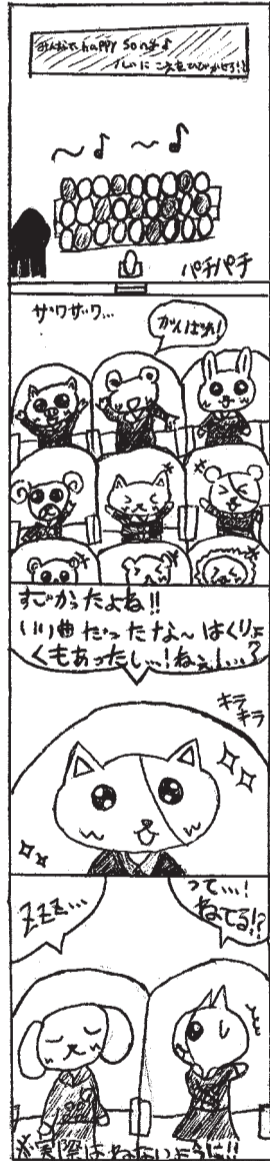 みんなで happy song♪
心に こえを ひびかせろ!!
パチパチ
ザワザワ…
がんばれ!
すごかったよね!!
いい曲だったな〜はくりょ
くもあったし…!ねぇ!…?
キラ
キラ
って…!
ねてる!?
ZZZ…
※実際はねないように!!